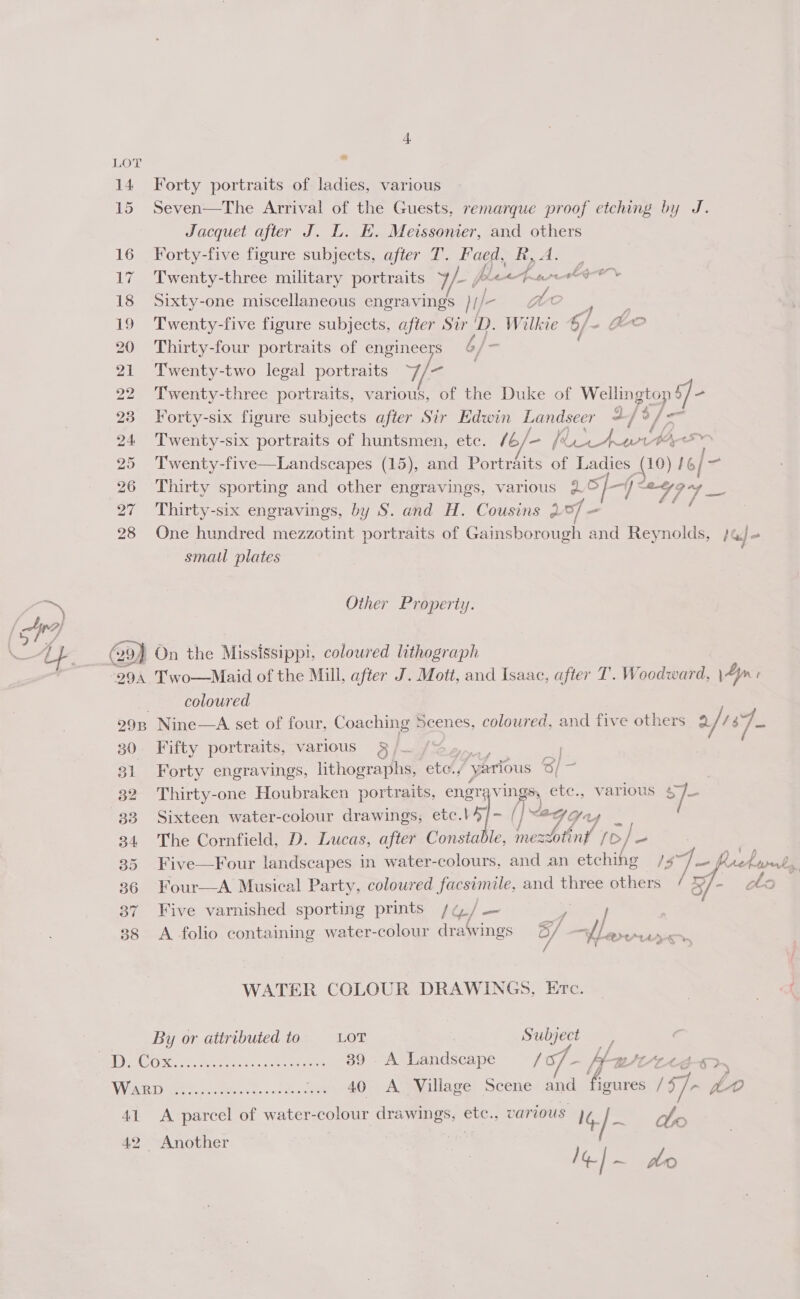 4
LOT
14 Forty portraits of ladies, various
15 Seven—The Arrival of the Guests, remarque proof etching by J.
Jacquet after J. L. E. Meissonier, and others
16 Forty-five figure subjects, after T. Faed, R,A.
17 Twenty-three military portraits 7/-
18 Sixty-one miscellaneous engravings 11/- do
19 Twenty-five figure subjects, after Sir D. Wilkie 6/- do
20 Thirty-four portraits of engineers 6/-
21 Twenty-two legal portraits 7/-
22 Twenty-three portraits, various, of the Duke of Wellington 5/-
23 Forty-six figure subjects after Sir Edwin Landseer
24 Twenty-six portraits of huntsmen, etc. 16/-
25 Twenty-five—Landscapes (15), and Portraits of Ladies (10) 16/-
26 Thirty sporting and other engravings, various 20/-
27 Thirty-six engravings, by S. and H. Cousins 20/-
28 One hundred mezzotint portraits of Gainsborough and Reynolds, 14/-
small plates
Other Property.
29 On the Mississippi, coloured lithograph
29A Two—Maid of the Mill, after J. Mott, and Isaac, after T. Woodward,
coloured
29B Nine—A set of four, Coaching Scenes, coloured, and five others 2/15/-
30 Fifty portraits, various 8/-
31 Forty engravings, lithographs, etc., various 8/-
32 Thirty-one Houbraken portraits, engravings, etc., various 5/-
33 Sixteen water-colour drawings, etc. 15/-
34 The Cornfield, D. Lucas, after Constable, mezzotint 10/-
35 Five—Four landscapes in water-colours, and an etching 15/-
36 Four—A Musical Party, coloured facsimile, and three others 15/- do
37 Five varnished sporting prints 14/-
38 A folio containing water-colour drawings 8/-
WATER COLOUR DRAWINGS, Etc.
By or attributed to LOT Subject
D. Cox........................ 39 A Landscape 10/-
Ward ........................ 40 A Village Scene and figures 15/- do
41 A parcel of water-colour drawings, etc., various 14/- do
42 Another 14/- do